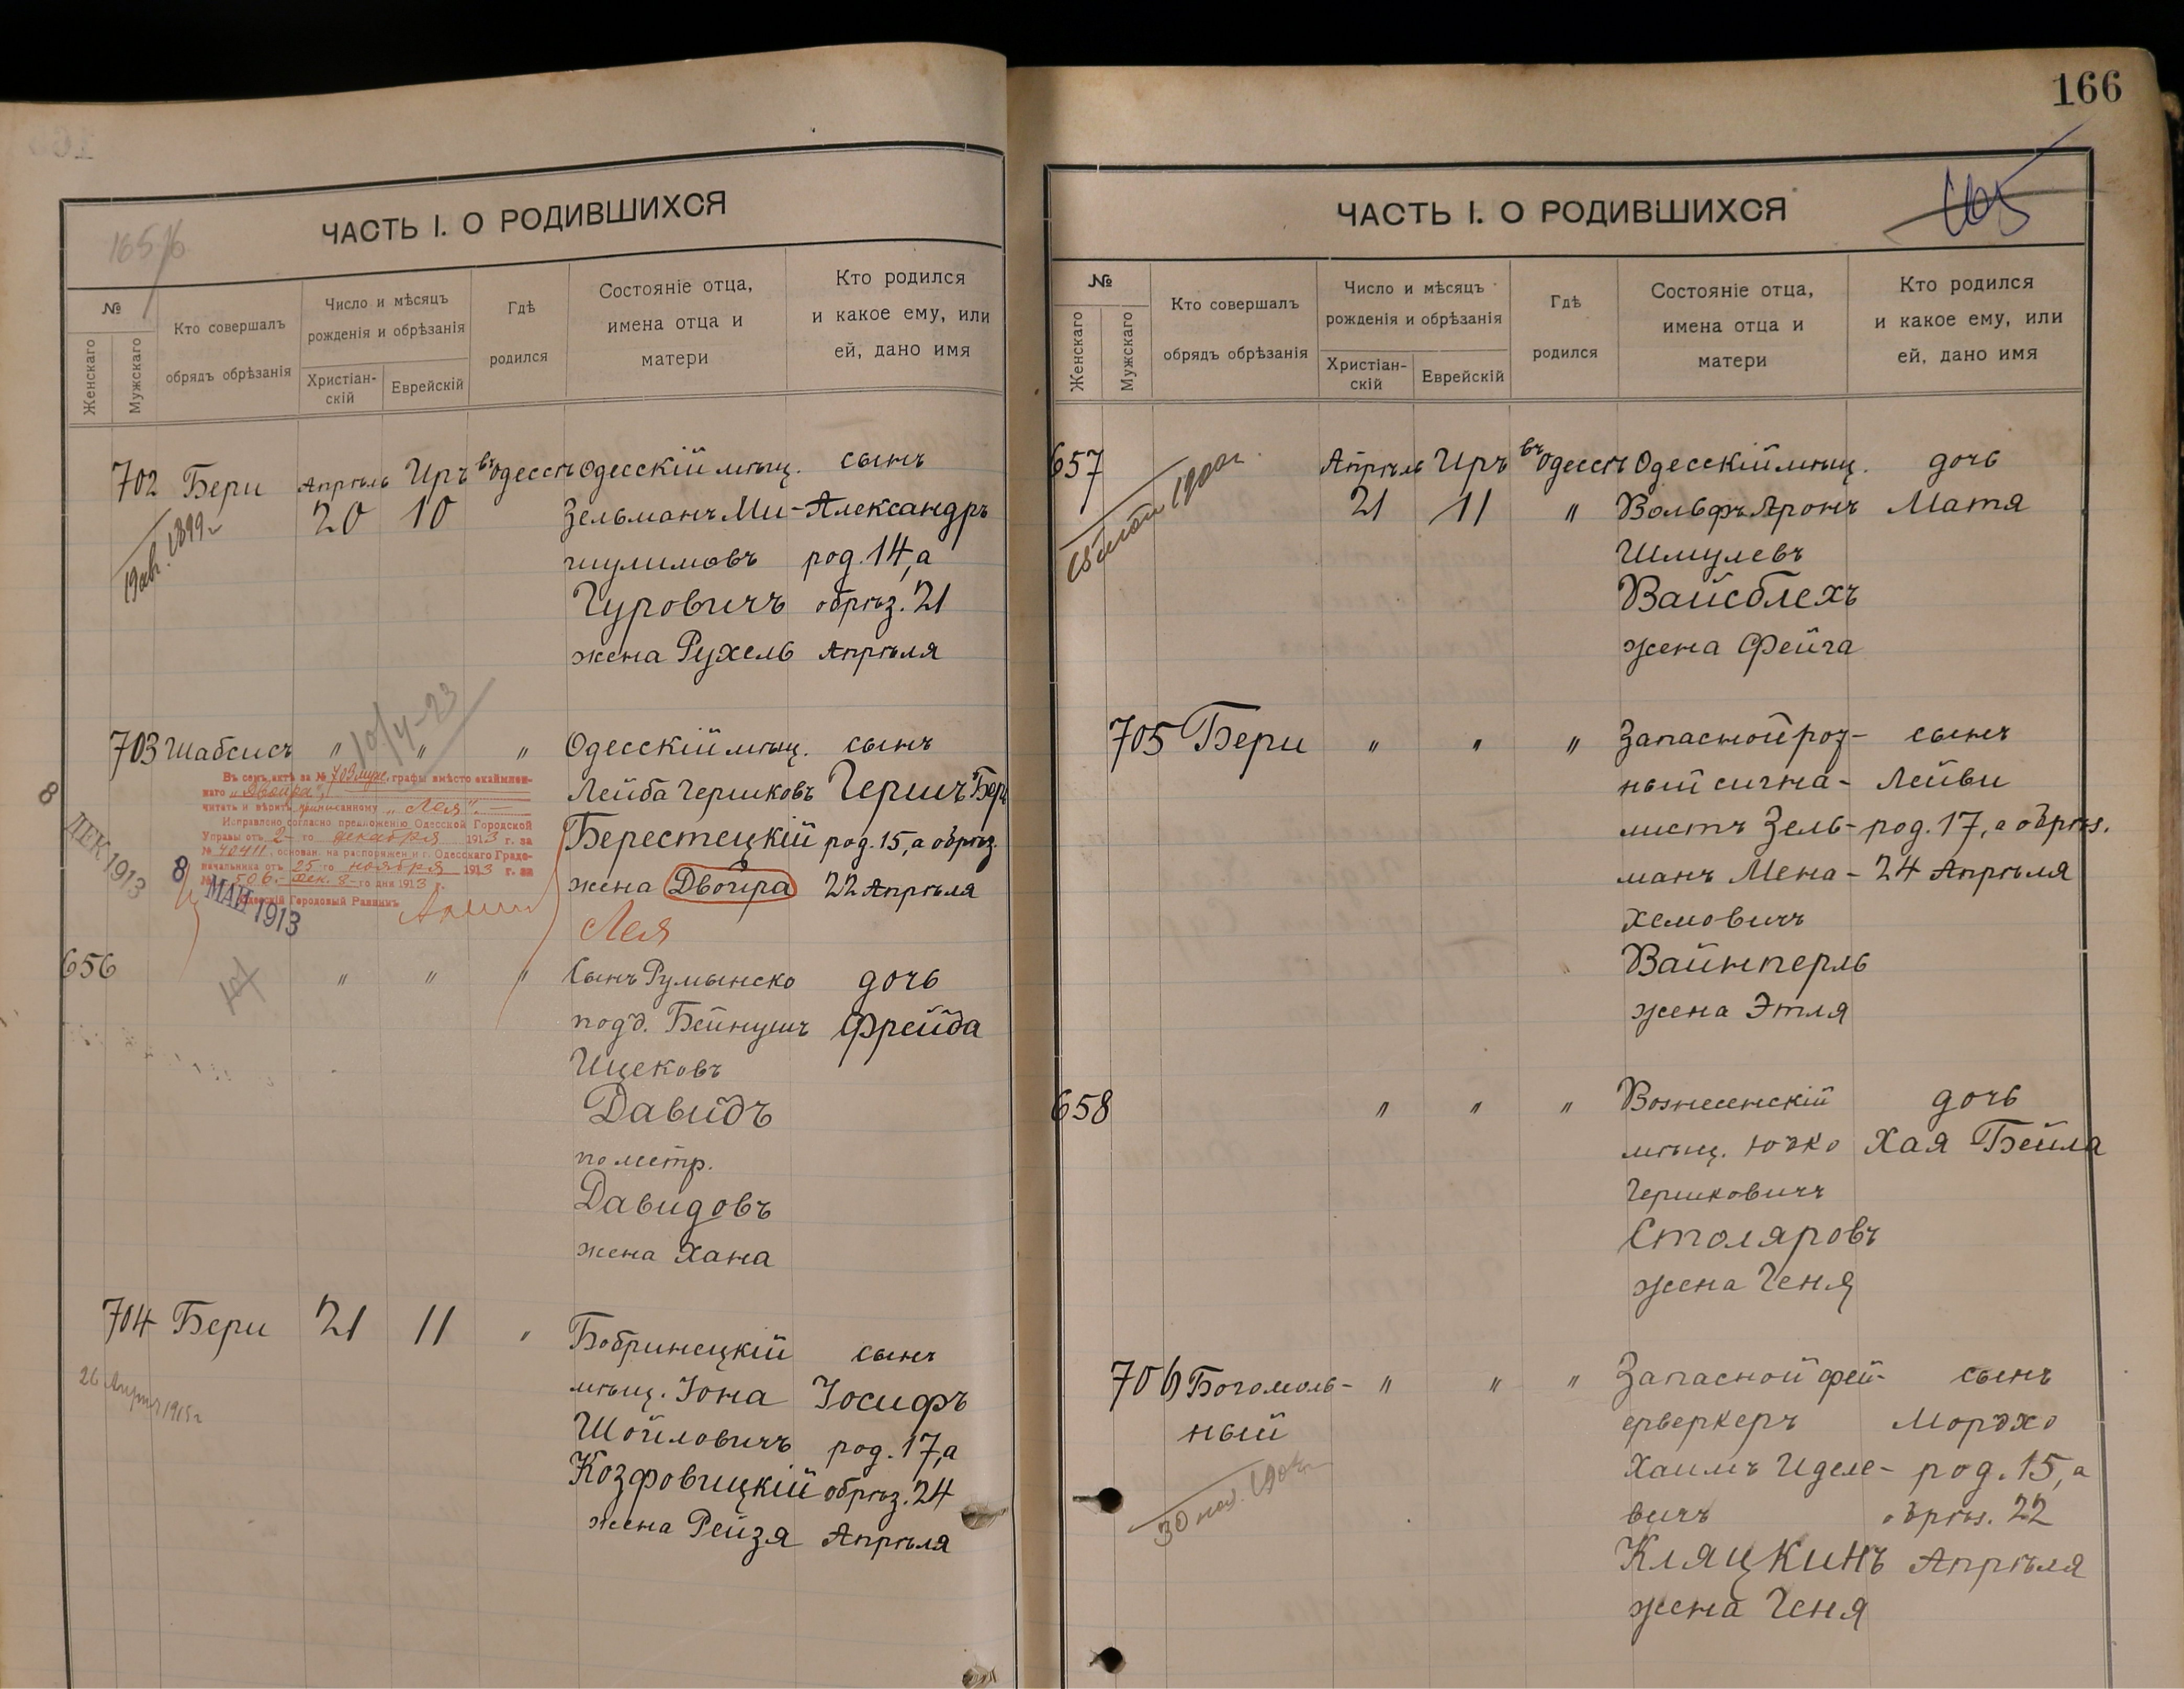 166
ЧАСТЬ I. О РОДИВШИХСЯ
№
Женскаго
Мужскаго
Кто совершалъ
обрядъ обрѣзанія
Число и мѣсяцъ
рожденія и обрѣзанія
Христіан-
скій
Еврейскій
Гдѣ
родился
Состояніе отца,
имена отца и
матери
Кто родился
и какое ему, или
ей, дано имя
702 Бери Апрѣль Иръ въ Одессѣ Одесскій мѣщ. сынъ
20 10 Зельманъ Ми- Александръ
19 авг. 1899 г
шулимовъ род. 14, а
Гуровичъ обрѣз. 21
жена Рухель Апрѣля
703 Шабсисъ " " " Одесскій мѣщ. сынъ
Лейба Гершковъ Гершъ Бер
Берестецкій род. 15, а обрѣз.
жена Двойра 22 Апрѣля
Лея
Въ семъ актѣ за № 703 муж. графы вмѣсто окаймлен-
наго "Двойра"
читать и вѣрить приписанному "Лея".
Исправлено согласно предложенію Одесской Городской
Управы отъ 2-го декабря 1913 г. за
№ 40411, основан. на распоряжен. г. Одесскаго Градо-
начальника отъ 25 го ноября 1913 г. за
№ 506. Дек. 8-го дня 1913 г.
Одесскій Городовый Раввинъ
8 ДЕК 1913
8 МАЙ 1913
656 " " " Сынъ Румынско
дочь
подд. Бейнушъ Фрейда
Ицековъ
Давидъ
по метр.
Давидовъ
жена Хана
704 Бери 21 11 " Бобринецкій сынъ
мѣщ. Іона Іосифъ
26 Апрѣл 1915 г
Шойловичъ род. 17, а
Козфовицкій обрѣз. 24
жена Рейзя Апрѣля
ЧАСТЬ I. О РОДИВШИХСЯ
165
№
Женскаго
Мужскаго
Кто совершалъ
обрядъ обрѣзанія
Число и мѣсяцъ
рожденія и обрѣзанія
Христіан-
скій
Еврейскій
Гдѣ
родился
Состояніе отца,
имена отца и
матери
Кто родился
и какое ему, или
ей, дано имя
657 Апрѣль Иръ въ Одессѣ Одесскій мѣщ. дочь
21 11 " Вольфъ Аронъ Матя
Шмулевъ
Вайсблехъ
жена Фейга
705 Бери " " " Запасной роз- сынъ
ный сигна- Лейви
листъ Зель- род. 17, а обрѣз.
манъ Мена- 24 Апрѣля
хемовичъ
Вайнперль
жена Этля
658 " " " Вознесенскій дочь
мѣщ. Іочко Хая Бейла
Гершковичъ
Столяровъ
жена Геня
706 Богомоль- " " " Запасной фей- сынъ
ный ерверкеръ Мордхо
Хаимъ Иделе- род. 15, а
вичъ обрѣз. 22
Кляцкинъ Апрѣля
жена Геня